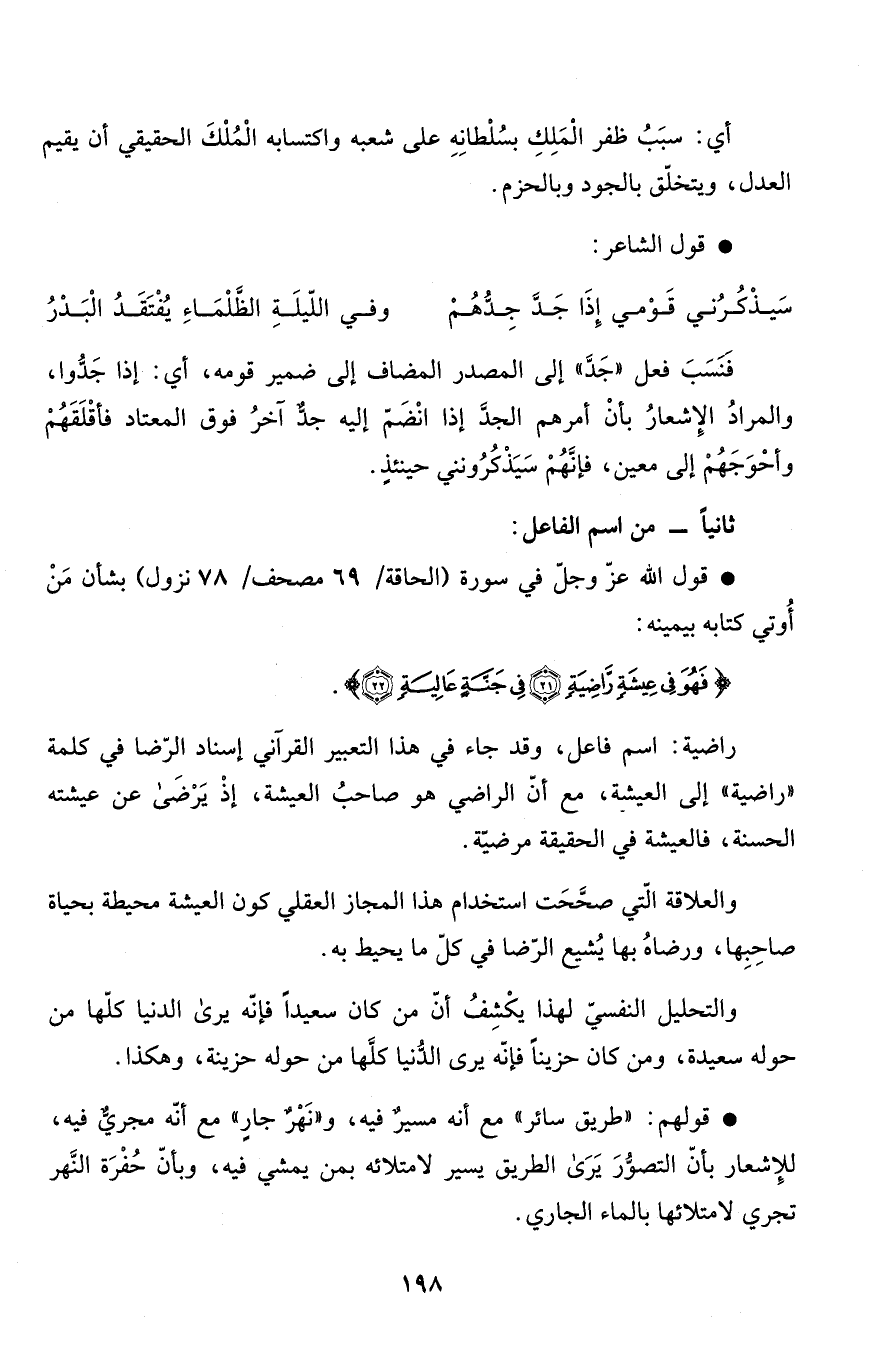 أي: سبَبُ ظفر الْمَلِكِ بسُلْطانِهِ على شعبه واكتسابه الْمُلْكَ الحقيقي أن يقيم
العدل، ويتخلّق بالجود وبالحزم.
● قول الشاعر:
سَيَذْكُرُنِي قَوْمِي إِذَا جَدَّ جِدُّهُمْ وفي اللّيلَةِ الظَّلْمَاءِ يُفْتَقَدُ الْبَدْرُ
فَنَسَبَ فعل «جَدَّ» إلى المصدر المضاف إلى ضمير قومه، أي: إذا جَدُّوا،
والمرادُ الإِشعارُ بأنْ أمرهم الجدَّ إذا انْضَمّ إليه جدٌّ آخرُ فوق المعتاد فأقْلَقَهُمْ
وأحْوَجَهُمْ إلى معين، فإنَّهُمْ سَيَذْكُرُونني حينئذٍ.
ثانياً ــ من اسم الفاعل:
● قول الله عزّ وجلّ في سورة (الحاقة/ ٦٩ مصحف/ ٧٨ نزول) بشأن مَنْ
أُوتي كتابه بيمينه:
﴿فَهُوَ فِي عِيشَةٍ رَّاضِيَةٍ ﴿٢١﴾ فِي جَنَّةٍ عَالِيَةٍ ﴿٢٢﴾﴾.
راضية: اسم فاعل، وقد جاء في هذا التعبير القرآني إسناد الرّضا في كلمة
«راضية» إلى العيشة، مع أنّ الراضي هو صاحبُ العيشة، إذْ يَرْضَىٰ عن عيشته
الحسنة، فالعيشة في الحقيقة مرضيّة.
والعلاقة الّتي صحَّحَت استخدام هذا المجاز العقلي كون العيشة محيطة بحياة
صاحِبِها، ورضاهُ بها يُشيع الرّضا في كلّ ما يحيط به.
والتحليل النفسيّ لهذا يكْشِفُ أنّ من كان سعيداً فإنّه يرىٰ الدنيا كلّها من
حوله سعيدة، ومن كان حزيناً فإنّه يرى الدُّنيا كلَّها من حوله حزينة، وهكذا.
● قولهم: «طريق سائر» مع أنه مسيرٌ فيه، و«نَهْرٌ جارٍ» مع أنّه مجريٌّ فيه،
للإِشعار بأنّ التصوُّرَ يَرَىٰ الطريق يسير لامتلائه بمن يمشي فيه، وبأنّ حُفْرَة النَّهر
تجري لامتلائها بالماء الجاري.
١٩٨